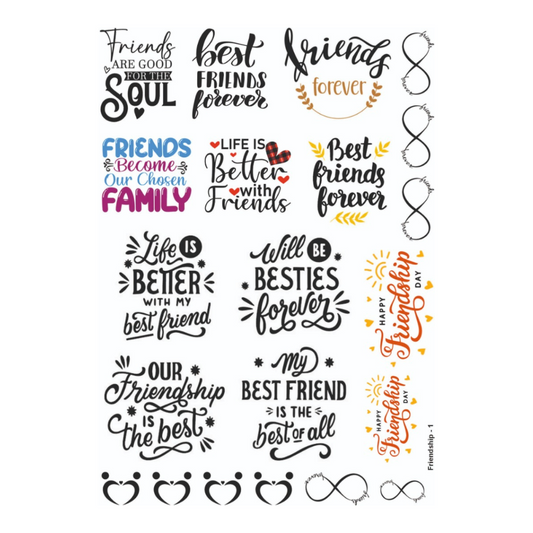 Friends
ARE GOOD
FOR THE
SOUL
best
FRIENDS
forever
friends
forever
friends
forever
FRIENDS
Become
Our Chosen
FAMILY
LIFE IS
Better
with
Friends
Best
friends
forever
friends
forever
friends
forever
Life IS
BETTER
WITH MY
best friend
Will BE
BESTIES
forever
HAPPY
Friendship
DAY
OUR
Friendship
is the best
My
BEST FRIEND
IS THE
best of all
HAPPY
Friendship
DAY
Friendship - 1
forever
friends